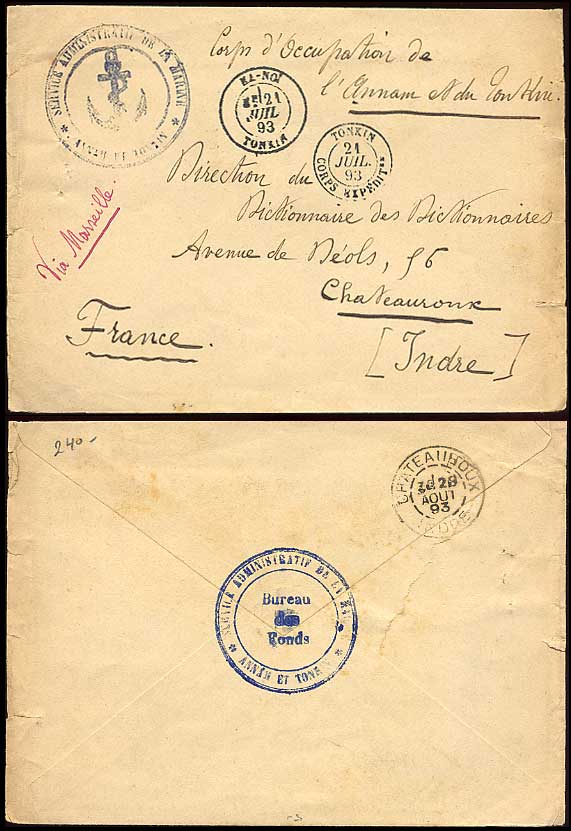 SERVICE ADMINISTRATIF DE LA MARINE
* ANNAM ET TONKIN *
Corps d'Occupation de
l'Annam et du Tonkin.
HA-NOI
21
JUIL
93
TONKIN
TONKIN
21
JUIL.
93
CORPS EXPÉDIT
Direction du
Dictionnaire des Dictionnaires
Avenue de Déols, 56
Chateauroux
[Indre]
Via Marseille.
France.
240-
CHATEAUROUX
28
AOUT
93
INDRE
SERVICE ADMINISTRATIF DE LA MARINE
Bureau
des
Fonds
* ANNAM ET TONKIN *